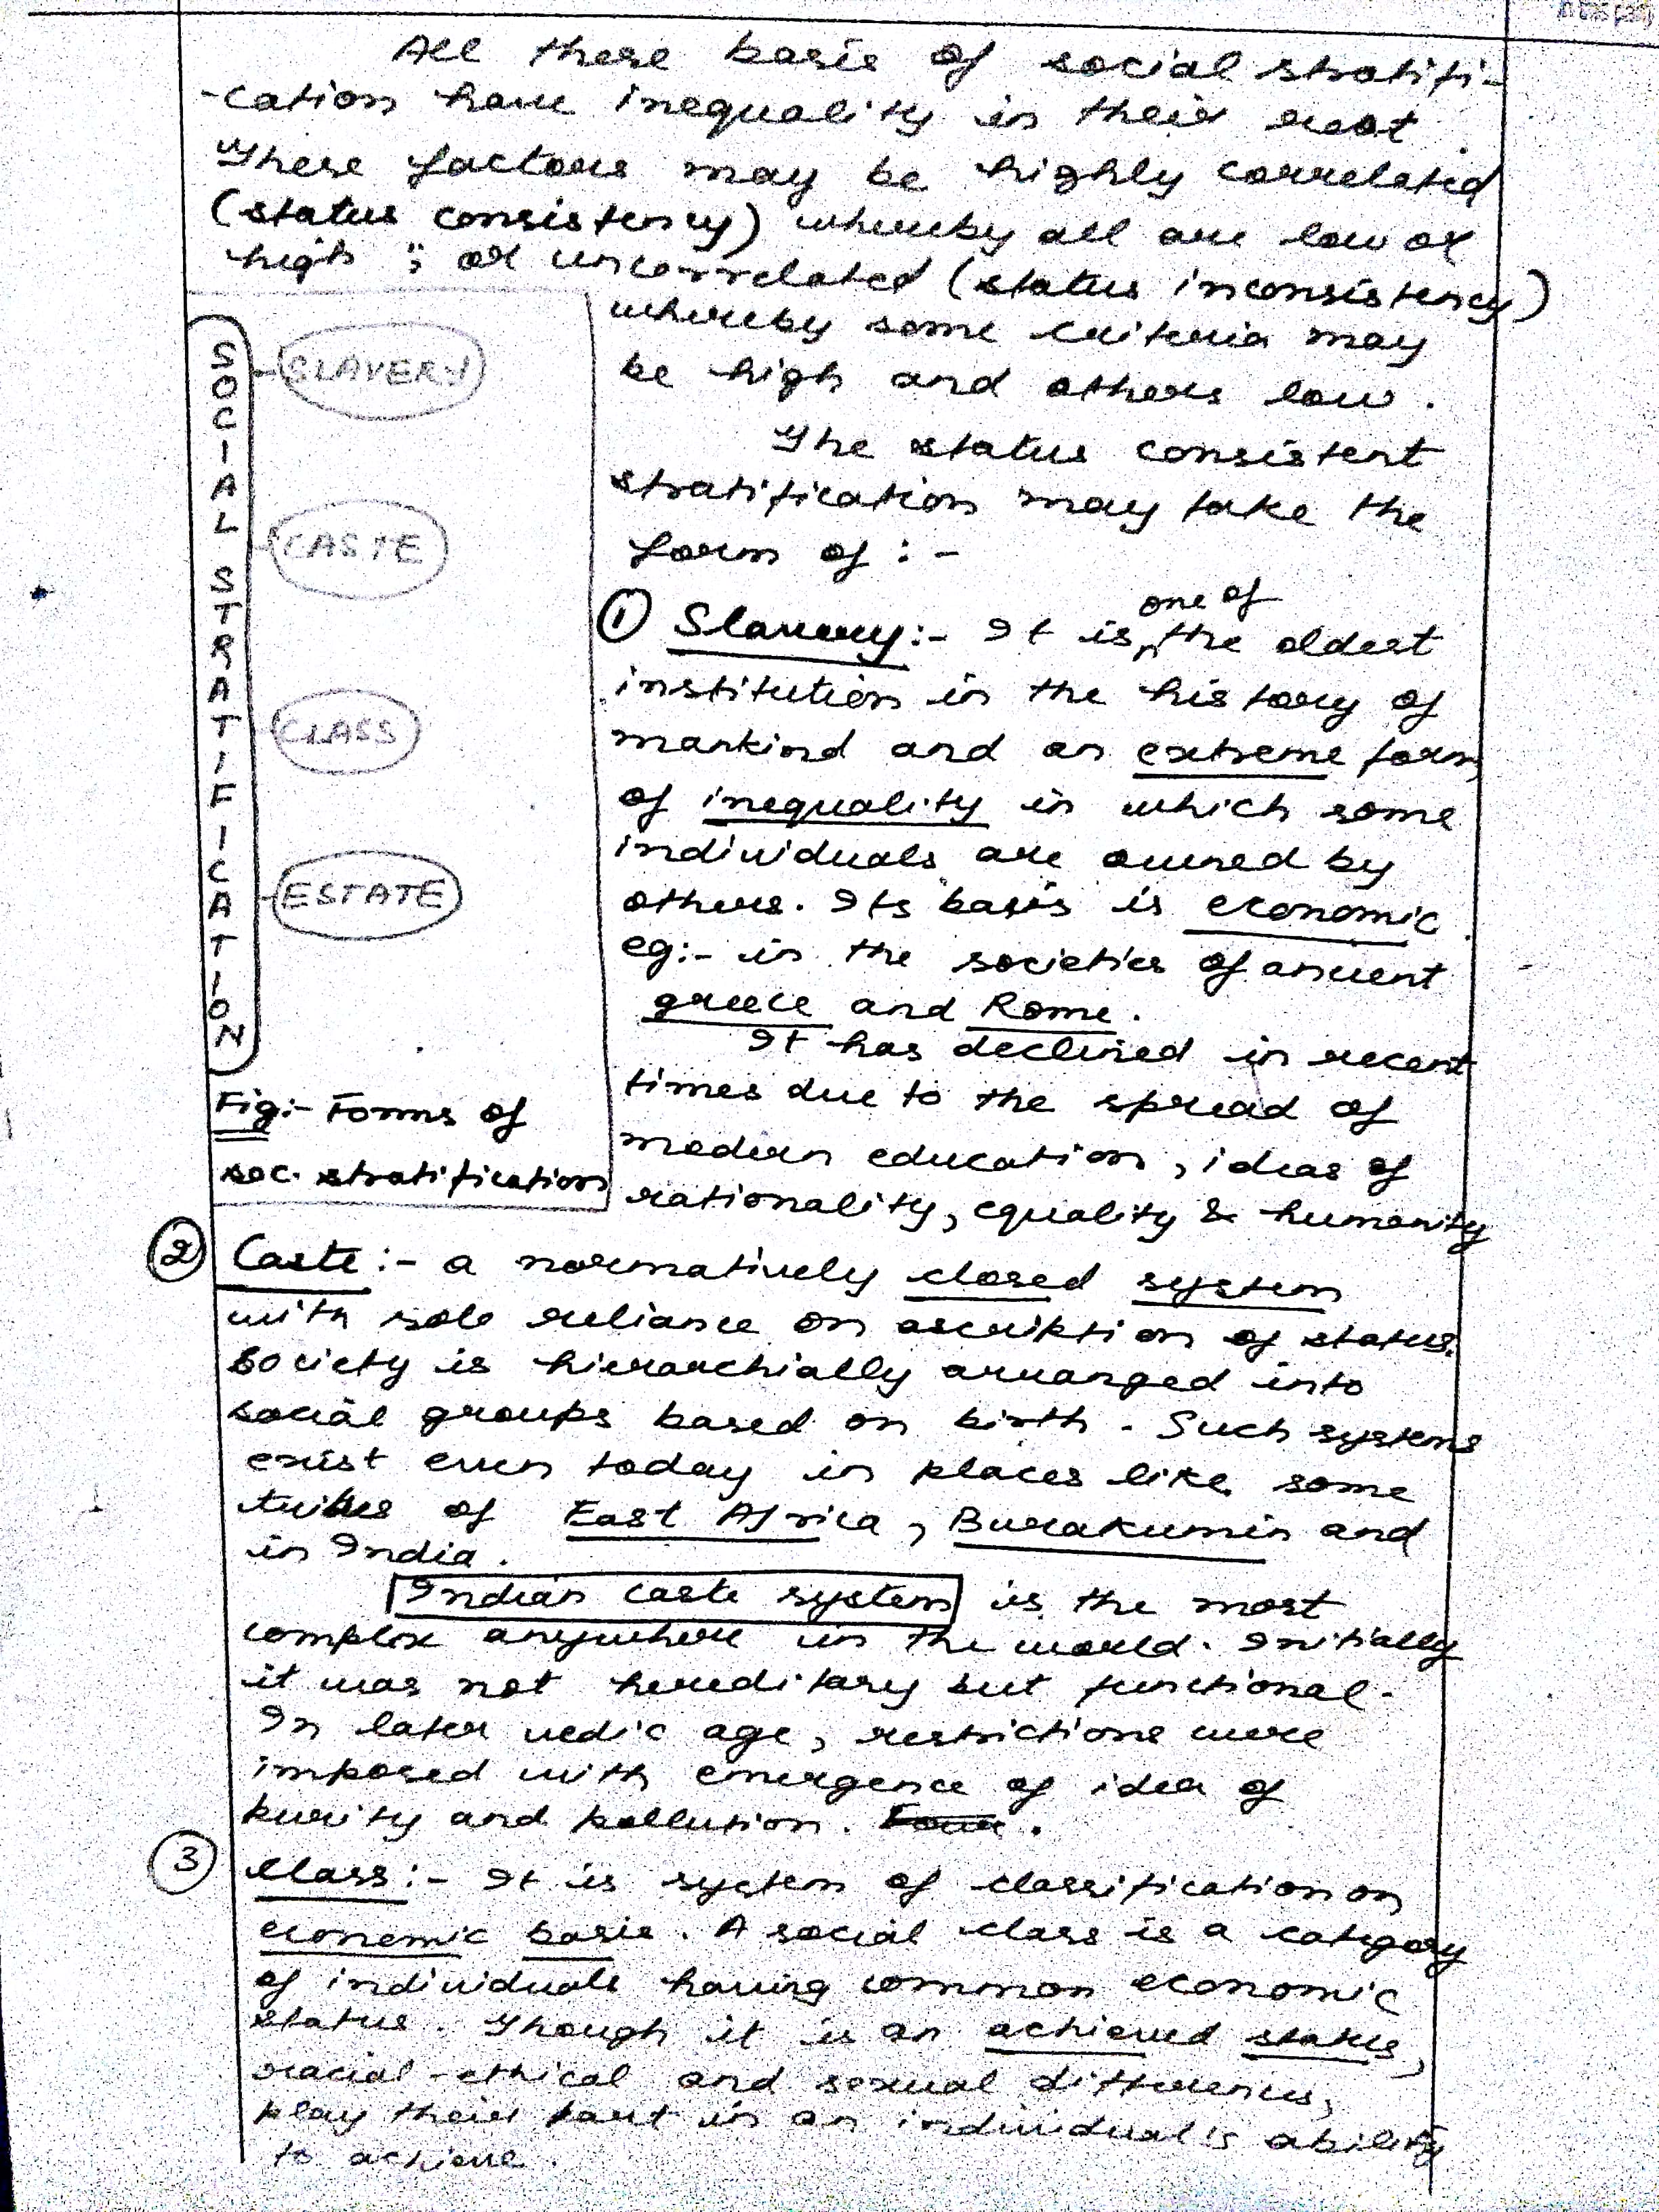 All these basis of social stratifi-
-cation have inequality in their root.
These factors may be highly correlated
(status consistency) whereby all are low or
high ; or uncorrelated (status inconsistency)
whereby some criteria may
be high and others low.
The status consistent
stratification may take the
form of :-
SOCIAL STRATIFICATION
SLAVERY
CASTE
CLASS
ESTATE
Fig:- Forms of
soc. stratification
① Slavery:- It is one of the oldest
institution in the history of
mankind and an extreme form
of inequality in which some
individuals are owned by
others. Its basis is economic.
eg:- in the societies of ancient
greece and Rome.
It has declined in recent
times due to the spread of
modern education, ideas of
rationality, equality & humanity
② Caste:- a normatively closed system
with sole reliance on ascription of status.
Society is hierarchially arranged into
social groups based on birth. Such systems
exist even today in places like some
tribes of East Africa, Burakumin and
in India.
Indian caste system is the most
complex anywhere in the world. Initially
it was not hereditary but functional.
In later vedic age, restrictions were
imposed with emergence of idea of
purity and pollution.
③ Class:- It is system of classification on
economic basis. A social class is a category
of individuals having common economic
status. Though it is an achieved status,
racial-ethical and sexual differences,
play their part in an individual's ability
to achieve.